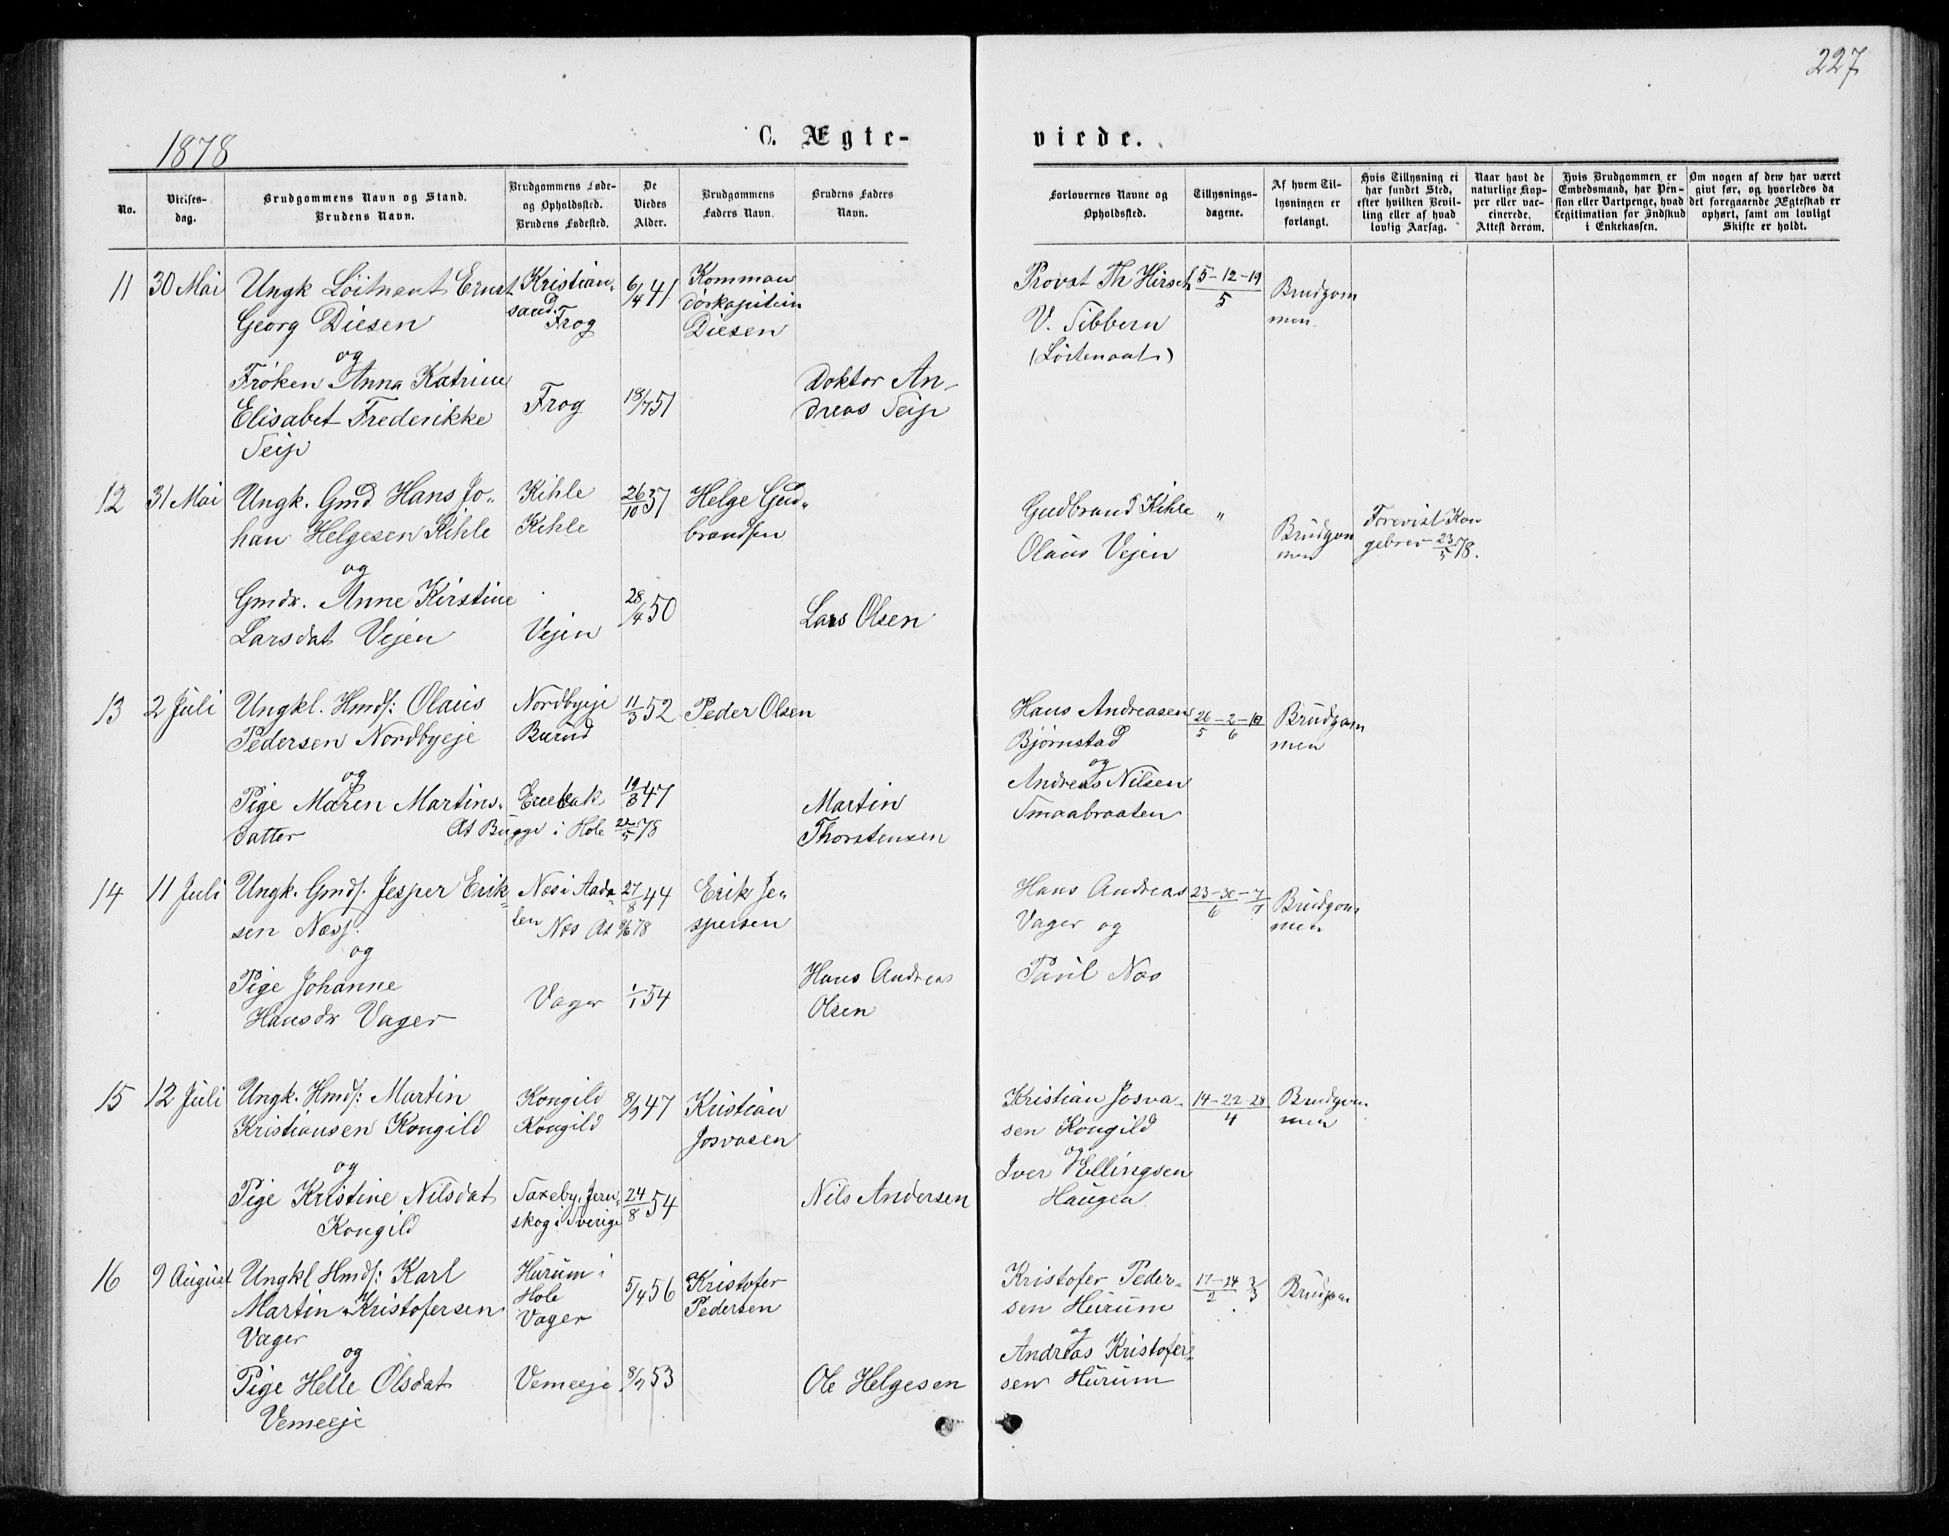 227
1878
C. Ægte-
viede.
No.
Vielses-
dag.
Brudgommens Navn og Stand.
Brudens Navn.
Brudgommens Føde-
og Opholdssted.
Brudens Fødested.
De
Viedes
Alder.
Brudgommens
Faders Navn.
Brudens Faders
Navn.
Forlovernes Navne og
Opholdssted.
Tillysnings-
dagene.
Af hvem Til-
lysningen er
forlangt.
Hvis Tillysning ei
har fundet Sted,
efter hvilken Bevil-
ling eller af hvad
lovlig Aarsag.
Naar havt de
naturlige Kop-
per eller vac-
cinerede,
Attest derom.
Hvis Brudgommen er
Embedsmand, har Pen-
sion eller Vartpenge, hvad
Legitimation for Indskud
i Enkekassen.
Om nogen af dem har været
gift før, og hvorledes da
det foregaaende Ægteskab er
ophørt, samt om lovligt
Skifte er holdt.
11 30 Mai Ungk Löitnant Ernst
Georg Diesen
og
Frøken Anna Katrine
Elisabet Frederikke
Teip
Kristian-
sand.
Frog
6/4 41
Komman
dörkapitein
Diesen
Frog
18/7 51
Doktor An-
dreas Teip
Provst Th Hirsch
V. Sibbern
(Löitenant)
5-12-19
5
Brudgom
men
12 31 Mai Ungk. Gmd Hans Jo-
han Helgesen Kihle
og
Gmdr. Anne Kirstine
Larsdat Vejen
Kihle
Kihle
26/10 37
Helge Gud-
brandsen
Vejen
28/4 50
Lars Olsen
Gudbrand Kihle
Olaus Vejen
"
Brudgom
men
Forevist Kon
gebrev 23/5 78.
13 2 Juli Ungkl. Hmds: Olaus
Pedersen Nordbyeje
og
Pige Maren Martins-
datter At Bugge i Hole 22/5 78
Nordbyeje
Burud
11/3 52
Peder Olsen
19/3 47
Martin
Thorstensen
Hans Andreasen
Bjørnstad
og
Andreas Nilsen
Smaabraaten
26-2-10
5 6
Brudgom
men
14 11 Juli Ungk. Gmds. Jesper Erik-
sen Næss.
og
Pige Johanne
Hansdr Vager
Næs i Aada-
len
Næs
27/8 44
Erik Je-
spersen
Vager
1/1 54
Hans Andreas
Olsen
Hans Andreas
Vager og
Paul Næs
23-30-7
6 7
Brudgom
men
15 12 Juli Ungk. Hmds: Martin
Kristiansen Kongild
og
Pige Kristine Nilsdat
Kongild
Kongild
Kongild
8/9 47
Kristian
Josvasen
Taxeby, Jern-
skog i Sverige
24/8 54
Nils Andersen
Kristian Josva-
sen Kongild
og
Iver Ellingsen
Haugen
14-22-28
4
Brudgom
men
16 9 August Ungkl Hmds: Karl
Martin Kristofersen
Vager
og
Pige Helle Olsdat
Vemeeje
Hurum i
Hole
Vager
5/4 56
Kristofer
Pedersen
Vemeeje
8/9 53
Ole Helgesen
Kristofer Peder-
sen Hurum
og
Andreas Kristofer-
sen Hurum
17-24 3/3
2
Brudgom